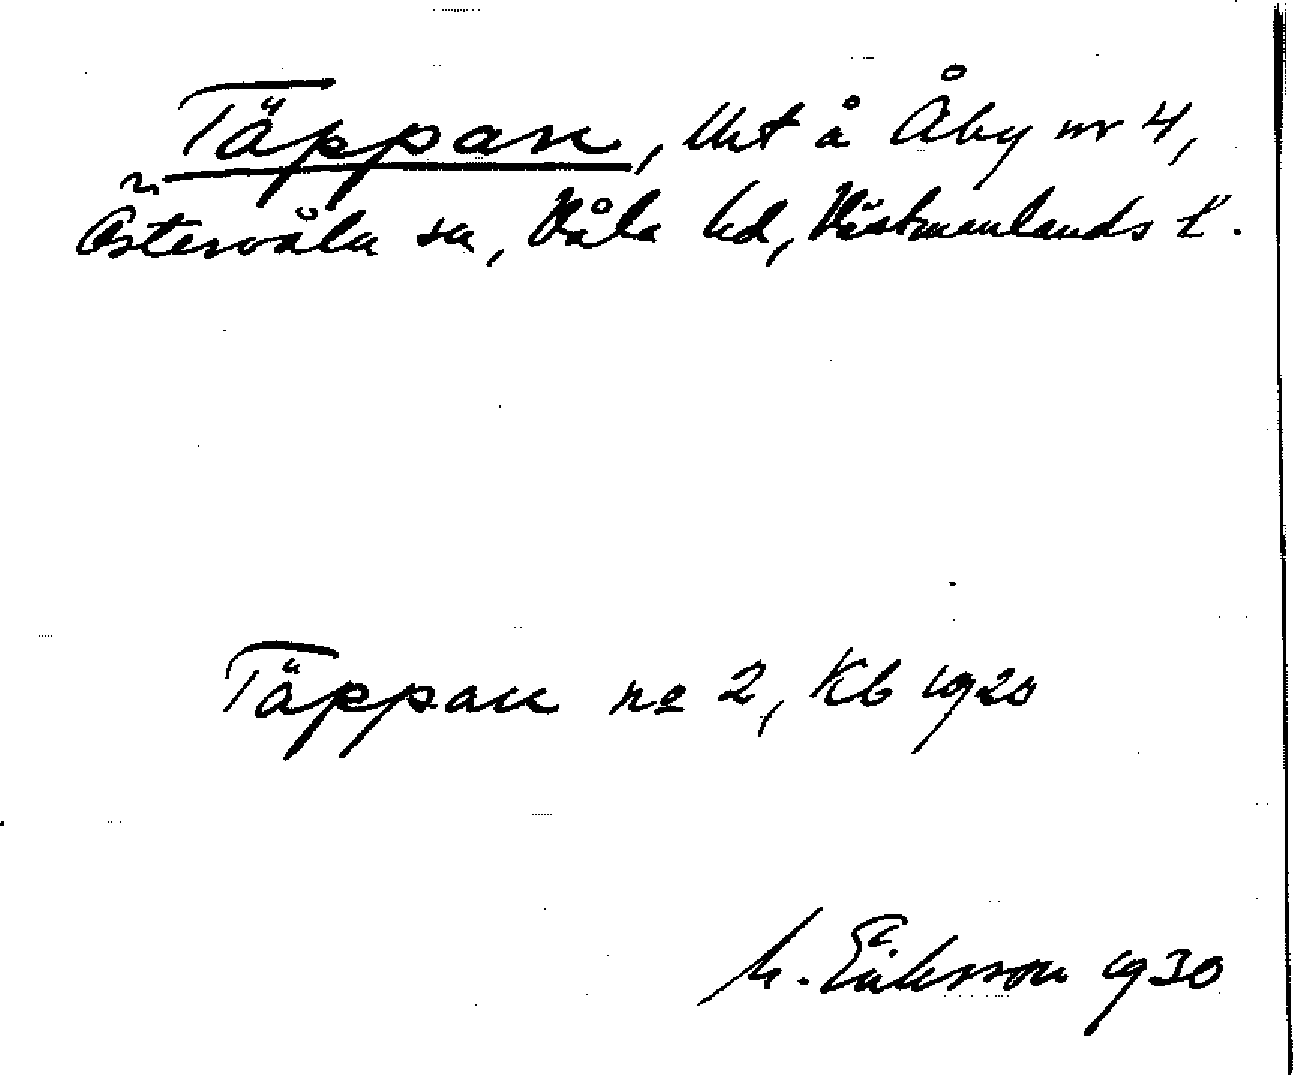 Täppan, lht å Åby nr 4,
Östervåla sn, Våla hd, Västmanlands l.
Täppan no 2, Kb 1920
M. Eriksson 1930